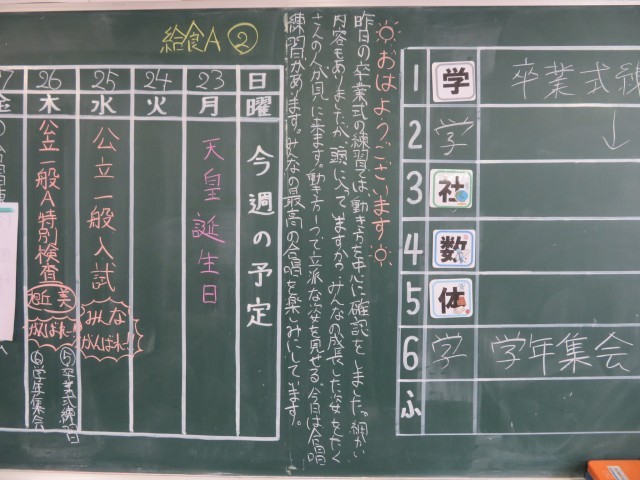 1 学 卒業式練
2 学 ↓
3 社
4 数
5 体
6 学 学年集会
ふ
おはようございます
昨日の卒業式の練習では、動き方を中心に確認をしました。細かい
内容もありましたが、頭に入ってますか？みんなの成長した姿をたく
さんの人が見に来ます。動き方一つで立派な姿を見せる、今日は合唱
練習があります。みんなの最高の合唱を楽しみにしています。
給食A ②
日 曜 今週の予定
23 月 天皇誕生日
24 火
25 水 公立一般入試 みんながんばれ!
26 木 公立一般A特別検査 がんばれ ⑤卒業式練習 ⑥学年集会
金